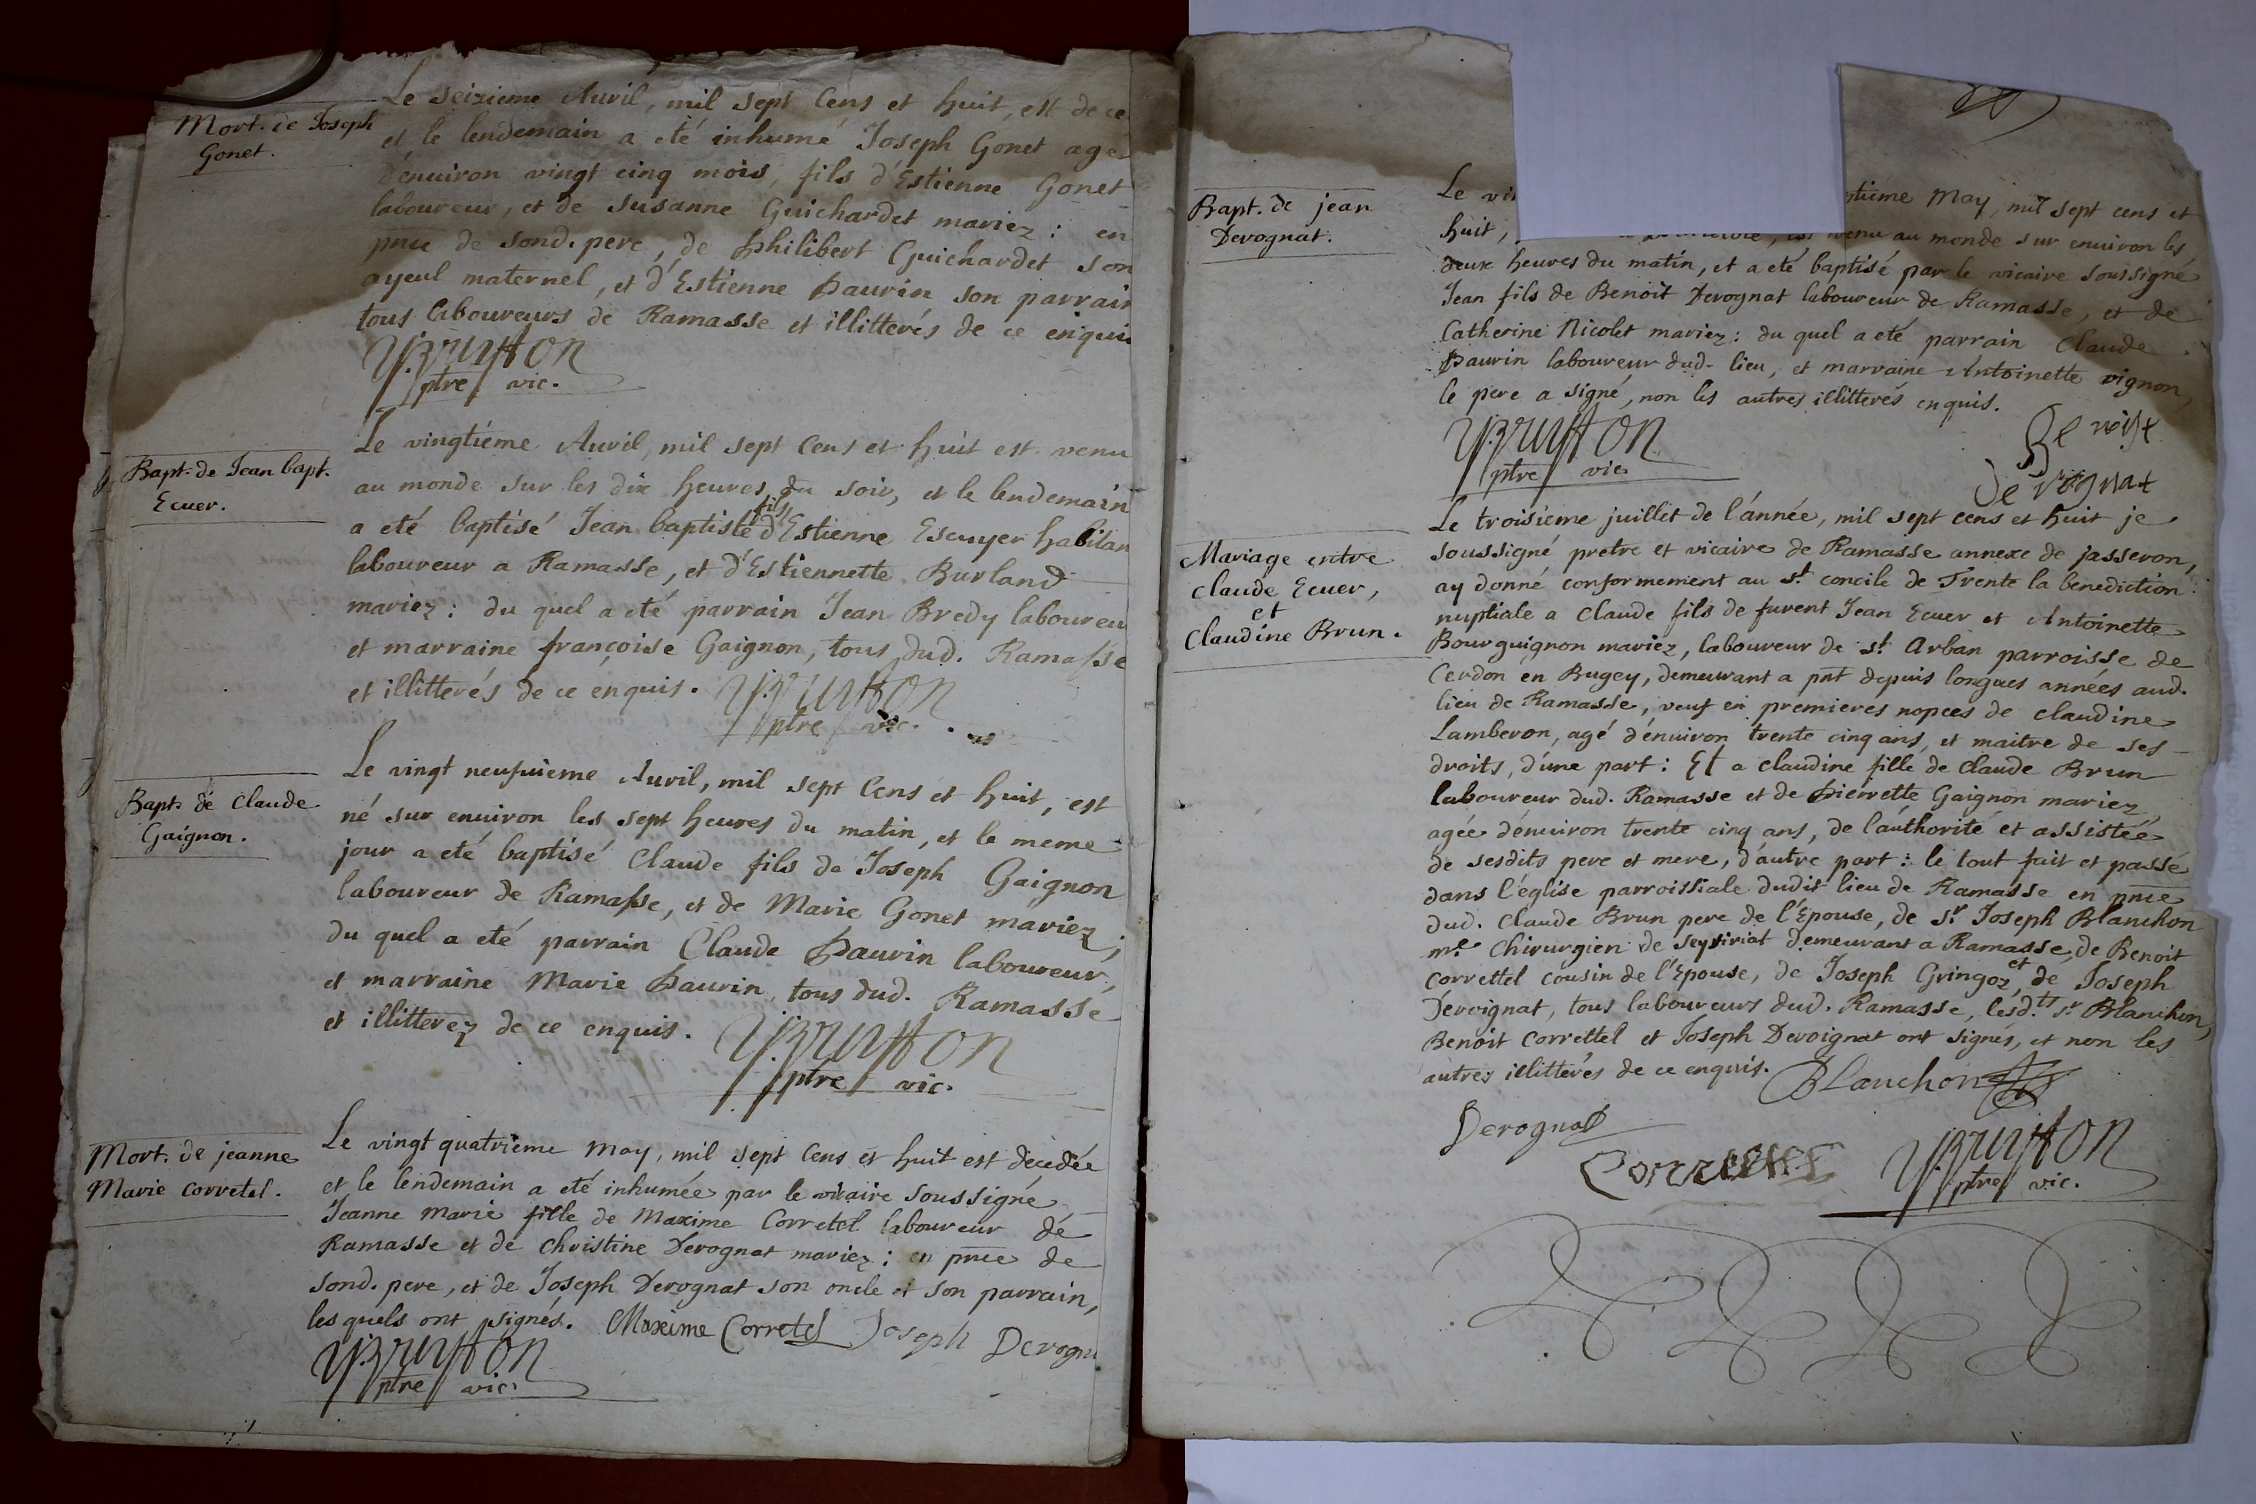 Mort. de Joseph
Gonet.
Le seizieme Auril, mil sept Cens et huit, est de ce
et le lendemain a eté inhumé Joseph Gonet age
d'enuiron vingt cinq mois, fils d'Estienne Gonet
laboureur, et de Susanne Guichardet mariez : en
pnce de sond. pere, de Philibert Guichardet son
ayeul maternel, et d'Estienne Paurin son parrain
tous laboureurs de Ramasse et illitterés de ce enquis
ptre vic.
Bapt. de Jean bapt.
Ecuer.
Le vingtiéme Auril, mil sept Cens et huit est venu
au monde sur les dix heures du soir, et le lendemain
a eté baptisé Jean baptiste fils d'Estienne Escuyer habitan
laboureur a Ramasse, et d'Estiennette Burland
mariez : du quel a eté parrain Jean Bredy laboureu
et marraine françoise Gaignon, tous dud. Ramasse
et illitterés de ce enquis.
ptre vic.
Bapt. de Claude
Gaignon.
Le vingt neufuieme Auril, mil sept Cens et huit, est
né sur enuiron les sept heures du matin, et le meme
jour a eté baptisé Claude fils de Joseph Gaignon
laboureur de Ramasse, et de Marie Gonet mariez ;
du quel a eté parrain Claude Paurin laboureur,
et marraine Marie Paurin, tous dud. Ramasse
et illitterez de ce enquis.
ptre vic.
Mort. de jeanne
Marie Corretel.
Le vingt quatrieme may, mil sept Cens et huit est decedée
et le lendemain a eté inhumée par le vicaire soussigné
Jeanne marie fille de Maxime Corretel laboureur de
Ramasse et de Christine Derognat mariez : en pnce de
sond. pere, et de Joseph Derognat son oncle et son parrain,
les quels ont signés. Maxime Corretel Joseph Derogn
ptre vic.
Bapt. de jean
Derognat.
Le vi ptieme May, mil sept cens et
huit, est venu au monde sur enuiron les
deux heures du matin, et a eté baptisé par le vicaire soussigné
Jean fils de Benoit Derognat laboureur de Ramasse, et de
Catherine Nicolet mariez : du quel a eté parrain Claude
Paurin laboureur dud. lieu, et marraine Antoinette vignon,
le pere a signé, non les autres illitterés enquis.
ptre vic.
Benoist
derognat
Mariage entre
Claude Ecuer,
et
Claudine Brun.
Le troisieme juillet de l'année, mil sept cens et huit je
soussigné pretre et vicaire de Ramasse annexe de jasseron,
ay donné conformement au st. concile de Trente la benediction
nuptiale a Claude fils de furent Jean Ecuer et Antoinette
Bourguignon mariez, laboureur de st. Arban parroisse de
Cerdon en Bugey, demeurant a pnt depuis longues années aud.
lieu de Ramasse, veuf en premieres nopces de Claudine
Lamberon, agé d'enuiron trente cinq ans, et maitre de ses
droits, d'une part : Et a Claudine fille de Claude Brun
laboureur dud. Ramasse et de Pierrette Gaignon mariez,
agée d'enuiron trente cinq ans, de l'authorité et assistée
de sesdits pere et mere, d'autre part : le tout fait et passé
dans l'église parroissiale dudit lieu de Ramasse en pnce
dud. Claude Brun pere de l'Epouse, de sr. Joseph Blanchon
me. Chirurgien de Seysiriat demeurant a Ramasse, de Benoit
Correttel cousin de l'Epouse, de Joseph Gringoz, et de Joseph
Deroignat, tous laboureurs dud. Ramasse, lesd.ts sr. Blanchon,
Benoit Correttel et Joseph Deroignat ont signés, et non les
autres illitterés de ce enquis. Blanchon
Derognat
Correttel
ptre vic.